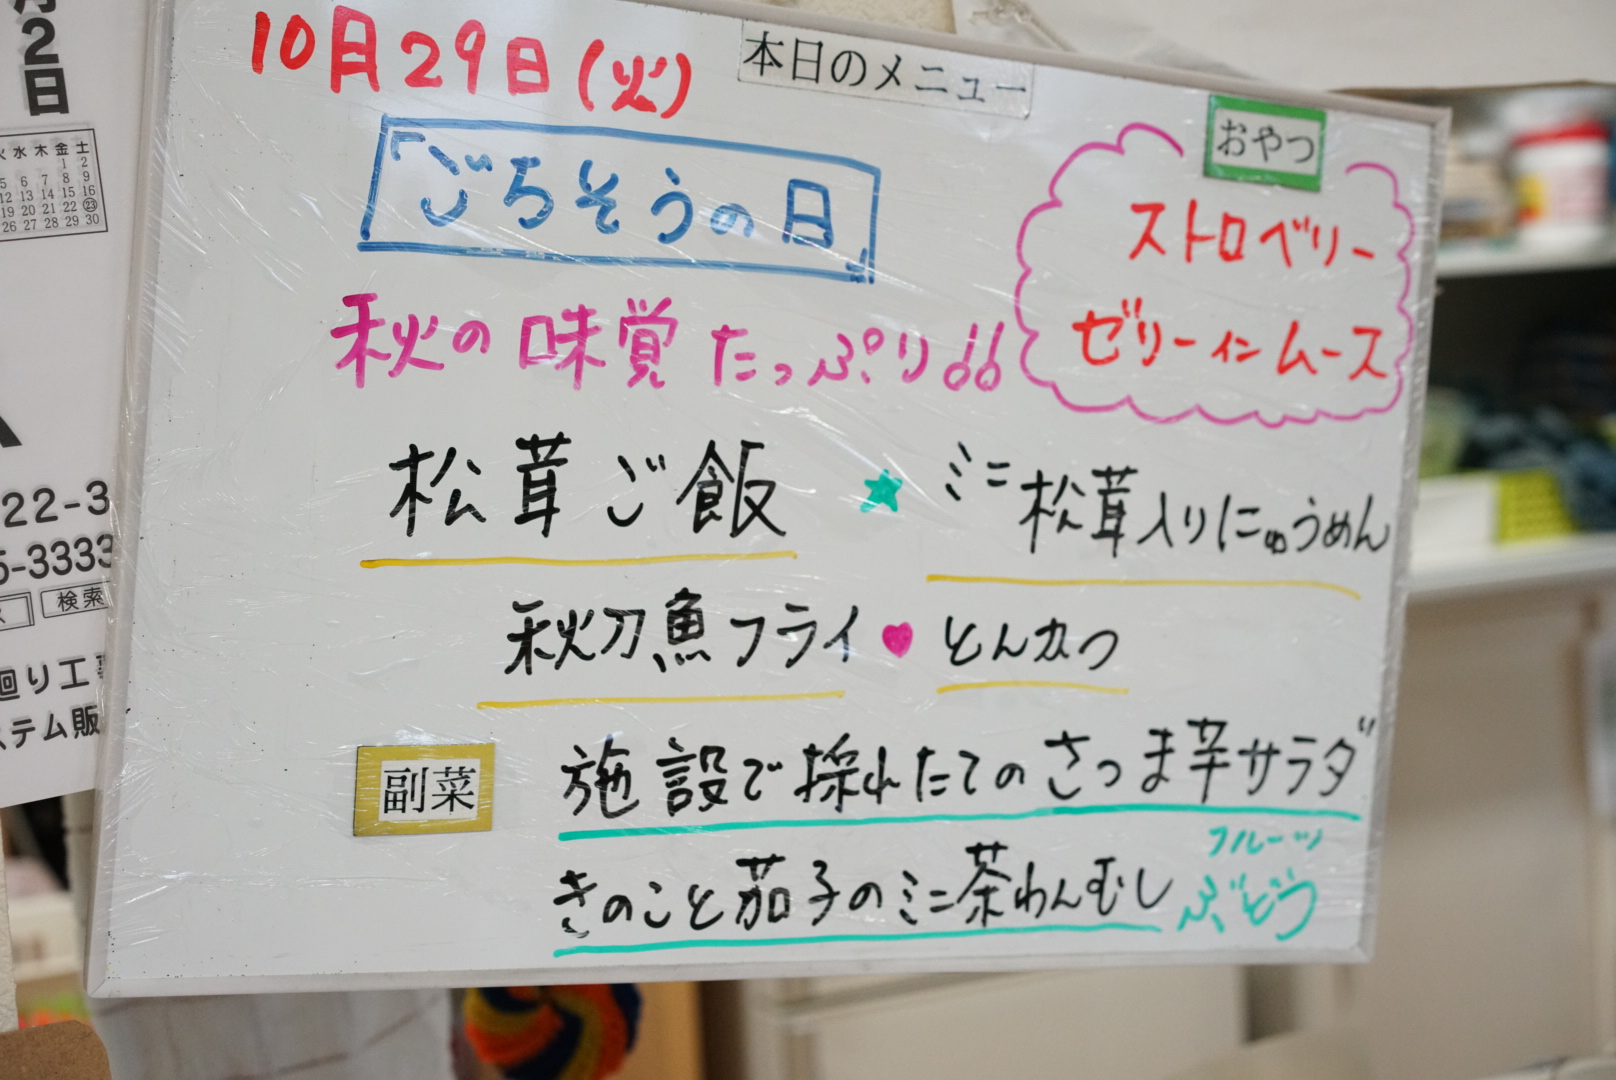 10月29日(火)
本日のメニュー
「ごちそうの日」
おやつ
ストロベリー
ゼリーインムース
秋の味覚たっぷり!!
松茸ご飯 ★ ミニ松茸入りにゅうめん
秋刀魚フライ ♥ とんカつ
副菜
施設で採れたてのさつま芋サラダ
きのこと茄子のミニ茶わんむし
フルーツ
ぶどう
2日
火 水 木 金 土
1 2
5 6 7 8 9
12 13 14 15 16
19 20 21 22 23
26 27 28 29 30
22-3
5-3333
検索
廻り工事
ステム販